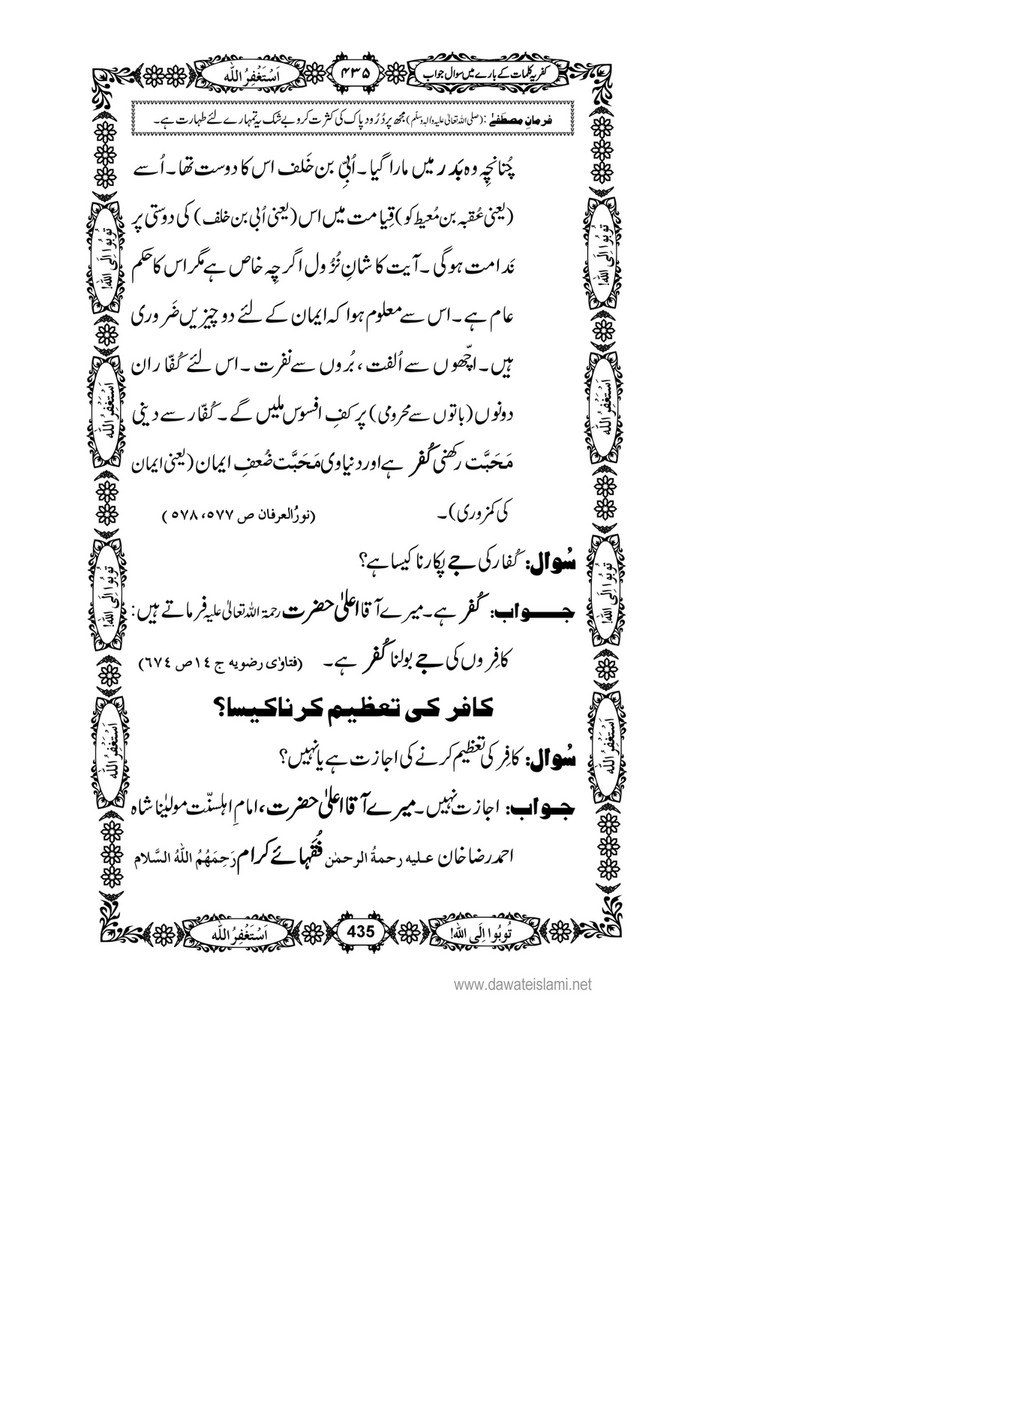 کفریہ کلمات کے بارے میں سوال جواب ۴۳۵ اَسْتَغْفِرُ اللّٰه
فرمانِ مصطَفٰے :(صلی اللہ تعالیٰ علیہ والہ وسلّم) مجھ پر دُرُود پاک کی کثرت کرو بے شک یہ تمہارے لئے طہارت ہے۔
چُنانچِہ وہ بَدر میں مارا گیا۔ اُبَیّ بن خَلف اس کا دوست تھا۔ اُسے
(یعنی عُقبہ بن مُعیط کو) قِیامت میں اس (یعنی اُبی بن خلف) کی دوستی پر
نَدامت ہوگی۔ آیت کا شانِ نُزُول اگرچِہ خاص ہے مگر اس کا حکم
عام ہے۔ اس سے معلوم ہوا کہ ایمان کے لئے دو چیزیں ضَروری
ہیں۔ اچّھوں سے اُلفت، بُروں سے نفرت۔ اس لئے کُفّار ان
دونوں (باتوں سے محرومی) پر کفِ افسوس ملیں گے۔ کُفّار سے دینی
مَحَبَّت رکھنی کُفر ہے اور دنیاوی مَحَبَّت ضُعفِ ایمان (یعنی ایمان
کی کمزوری)۔ (نورُالعرفان ص ٥٧٧، ٥٧٨)
سُوال: کُفار کی جے پکارنا کیسا ہے؟
جواب: کُفر ہے۔ میرے آقا اعلیٰ حضرت رحمۃ اللہ تعالیٰ علیہ فرماتے ہیں:
کافِروں کی جے بولنا کُفر ہے۔ (فتاوٰی رضویہ ج ١٤ ص ٦٧٤)
کافر کی تعظیم کرنا کیسا؟
سُوال: کافِر کی تعظیم کرنے کی اجازت ہے یا نہیں؟
جواب: اجازت نہیں۔ میرے آقا اعلیٰ حضرت، امامِ اہلسنّت مولیٰنا شاہ
احمد رضا خان علیہ رحمةُ الرحمٰن فُقَہائے کرام رَحِمَهُمُ اللّٰهُ السَّلام
تُوبُوا اِلَی اللّٰه! 435 اَسْتَغْفِرُ اللّٰه
تُوبُوا اِلَی اللّٰه!
اَسْتَغْفِرُ اللّٰه
تُوبُوا اِلَی اللّٰه!
اَسْتَغْفِرُ اللّٰه
تُوبُوا اِلَی اللّٰه!
اَسْتَغْفِرُ اللّٰه
تُوبُوا اِلَی اللّٰه!
اَسْتَغْفِرُ اللّٰه
www.dawateislami.net